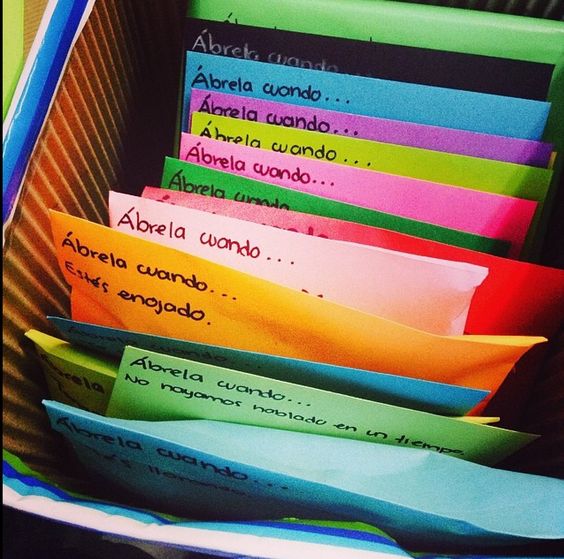 Ábrela cuando...
Ábrela cuando...
Ábrela cuando...
Ábrela cuando...
Ábrela cuando...
Ábrela cuando
Ábrela cuando...
Ábrela cuando...
Estés enojado.
Ábrela cuando...
Ábrela
Ábrela cuando...
No hayamos hablado en un tiempo.
Ábrela cuando...